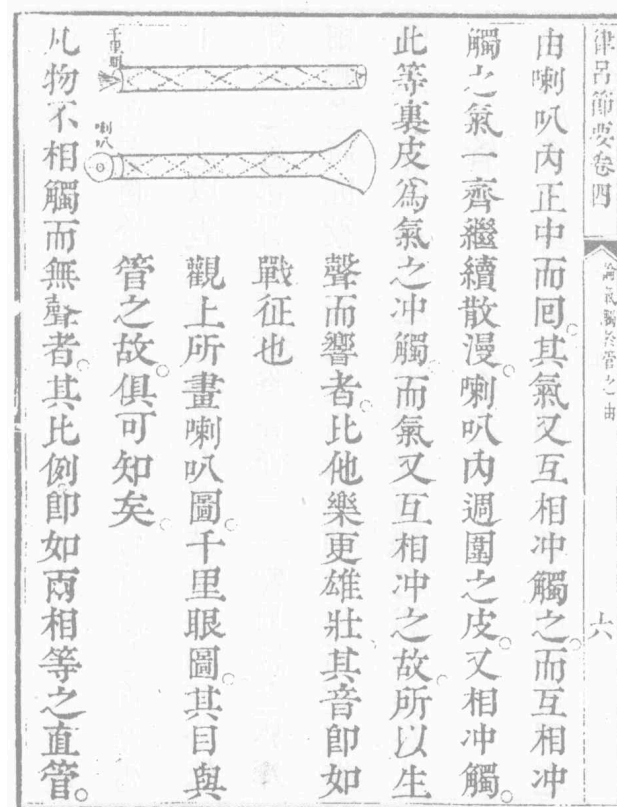 律呂節要卷四
論氣觸於管之由
六
由喇叭內正中而囘。其氣又互相冲觸之。而互相冲
觸之氣一齊繼續散漫。喇叭內週圍之皮。又相冲觸。
此等裏皮爲氣之冲觸。而氣又互相冲之故。所以生
聲而響者。比他樂更雄壯。其音卽如
戰征也
觀上所畫喇叭圖。千里眼圖。其目與
管之故。俱可知矣。
千里眼
喇叭
凡物不相觸而無聲者。其比例卽如兩相等之直管。